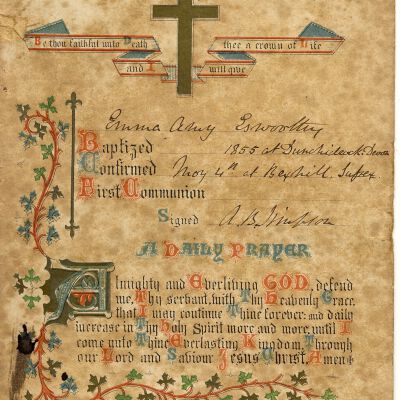 Be thou faithful unto Death
and I will give
thee a crown of Life
Emma Amy Esworthy
Baptized 1855 at Dunchideock. Devon
Confirmed May 4th at Bexhill. Sussex.
First Communion
Signed A. B. Simpson
A DAILY PRAYER
Almighty and Everliving GOD, defend
me, Thy servant, with Thy Heavenly Grace,
that I may continue Thine forever: and daily
increase in Thy Holy Spirit more and more, until I
come unto Thine Everlasting Kingdom, Through
our Lord and Saviour Jesus Christ, Amen